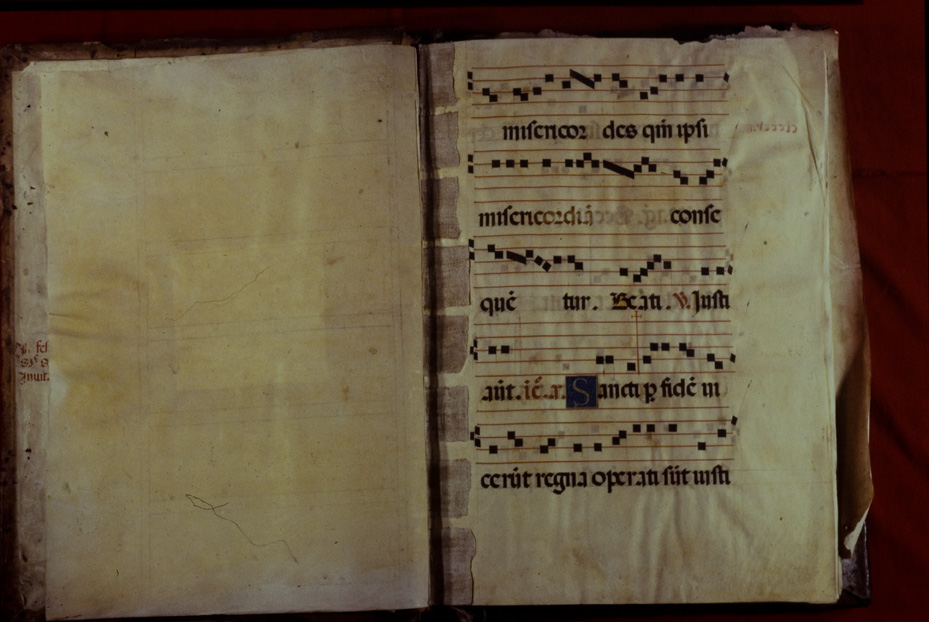 misericor des qm̄ ipsi
misericordiā conse
quē tur. Beati. V. Justi
aūt. Sancti ꝑ fidē ui
cerūt regna operati sūt iusti